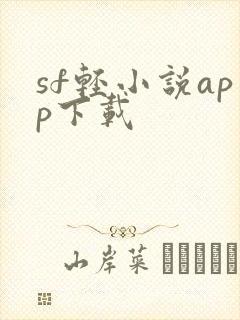 sf軽小説ap
p下載
山岸菜